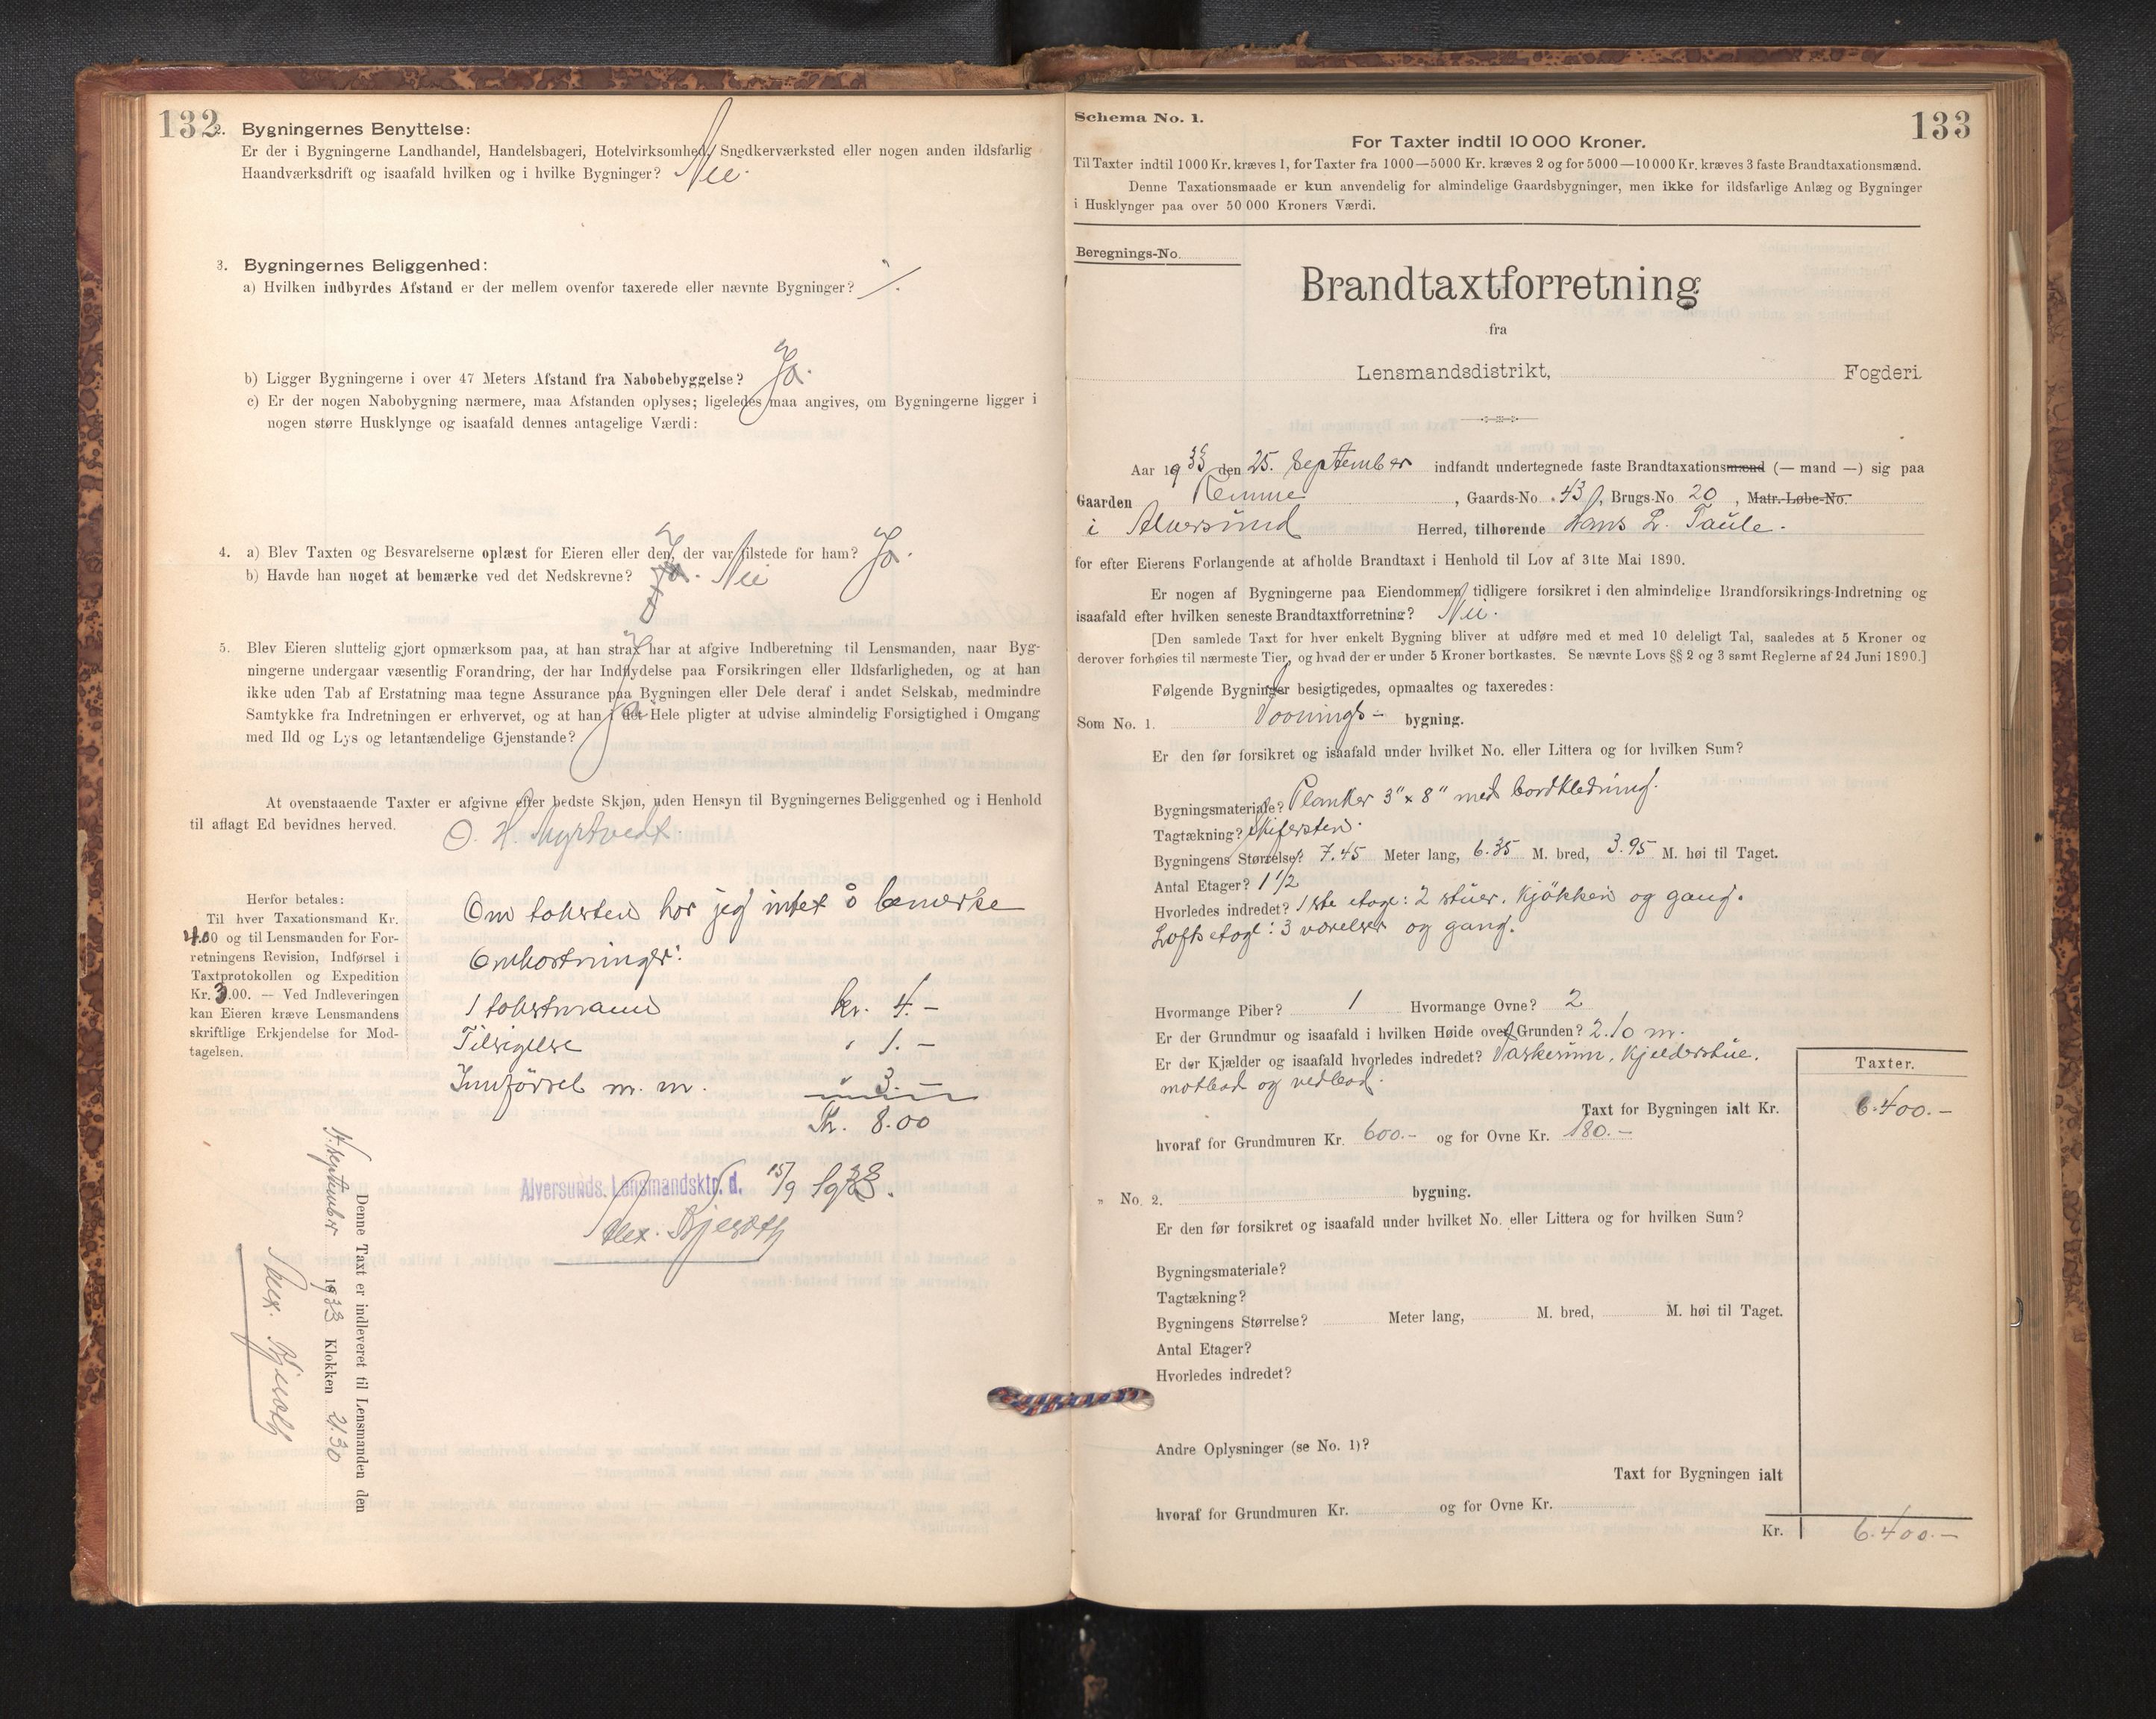 132
2. Bygningernes Benyttelse:
Er der i Bygningerne Landhandel, Handelsbageri, Hotelvirksomhed, Snedkerværksted eller nogen anden ildsfarlig
Haandværksdrift og isaafald hvilken og i hvilke Bygninger? Nei.
3. Bygningernes Beliggenhed:
a) Hvilken indbyrdes Afstand er der mellem ovenfor taxerede eller nævnte Bygninger? ⁒
b) Ligger Bygningerne i over 47 Meters Afstand fra Nabobebyggelse? Ja.
c) Er der nogen Nabobygning nærmere, maa Afstanden oplyses; ligeledes maa angives, om Bygningerne ligger i
nogen større Husklynge og isaafald dennes antagelige Værdi:
4. a) Blev Taxten og Besvarelserne oplæst for Eieren eller den, der var tilstede for ham? Ja.
b) Havde han noget at bemærke ved det Nedskrevne? Ja. Nei
5. Blev Eieren sluttelig gjort opmærksom paa, at han strax har at afgive Indberetning til Lensmanden, naar Byg-
ningerne undergaar væsentlig Forandring, der har Indflydelse paa Forsikringen eller Ildsfarligheden, og at han
ikke uden Tab af Erstatning maa tegne Assurance paa Bygningen eller Dele deraf i andet Selskab, medmindre
Samtykke fra Indretningen er erhvervet, og at han i det Hele pligter at udvise almindelig Forsigtighed i Omgang
med Ild og Lys og letantændelige Gjenstande? Ja
At ovenstaaende Taxter er afgivne efter bedste Skjøn, uden Hensyn til Bygningernes Beliggenhed og i Henhold
til aflagt Ed bevidnes herved.
O. H. Myrtvedt.
Herfor betales:
Til hver Taxationsmand Kr.
4.00 og til Lensmanden for For-
retningens Revision, Indførsel i
Taxtprotokollen og Expedition
Kr. 3.00. — Ved Indleveringen
kan Eieren kræve Lensmandens
skriftlige Erkjendelse for Mod-
tagelsen.
Om taksten har jeg intet å bemerke
Omkostninger:
1 takstmann kr. 4.-
Tilsigelse " 1.-
Innførsel m. m. " 3.-
Kr. 8.00
Alversunds Lensmandsktr. d. 15/9 1933.
Alex. 
Denne Taxt er indleveret til Lensmanden den
september 1933 Klokken 21.30
Alex.
133
Schema No. 1.
For Taxter indtil 10 000 Kroner.
Til Taxter indtil 1000 Kr. kræves 1, for Taxter fra 1000—5000 Kr. kræves 2 og for 5000—10000 Kr. kræves 3 faste Brandtaxationsmænd.
Denne Taxationsmaade er kun anvendelig for almindelige Gaardsbygninger, men ikke for ildsfarlige Anlæg og Bygninger
i Husklynger paa over 50 000 Kroners Værdi.
Beregnings-No.
Brandtaxtforretning
fra
Lensmandsdistrikt, Fogderi.
Aar 1933 den 25. September indfandt undertegnede faste Brandtaxationsmænd (— mand —) sig paa
Gaarden Remme, Gaards-No. 43, Brugs-No 20, Matr.-Løbe-No.
i Alversund Herred, tilhørende Hans L. Taule.
for efter Eierens Forlangende at afholde Brandtaxt i Henhold til Lov af 31te Mai 1890.
Er nogen af Bygningerne paa Eiendommen tidligere forsikret i den almindelige Brandforsikrings-Indretning og
isaafald efter hvilken seneste Brandtaxtforretning? Nei.
[Den samlede Taxt for hver enkelt Bygning bliver at udføre med et med 10 deleligt Tal, saaledes at 5 Kroner og
derover forhøies til nærmeste Tier, og hvad der er under 5 Kroner bortkastes. Se nævnte Lovs §§ 2 og 3 samt Reglerne af 24 Juni 1890.]
Følgende Bygninger besigtigedes, opmaaltes og taxeredes:
Som No. 1. Vaanings- bygning.
Er den før forsikret og isaafald under hvilket No. eller Littera og for hvilken Sum?
Bygningsmateriale? Planker 3" x 8" med bordkledning.
Tagtækning? Skifersten.
Bygningens Størrelse? 7.45 Meter lang, 6.35 M. bred, 3.95 M. høi til Taget.
Antal Etager? 1 1/2
Hvorledes indredet? 1ste etage: 2 stuer. Kjøkken og gang.
Loftsetage: 3 værelser og gang.
Hvormange Piber? 1 Hvormange Ovne? 2
Er der Grundmur og isaafald i hvilken Høide over Grunden? 2.10 m.
Er der Kjælder og isaafald hvorledes indredet? Vaskerum, Kjelderstue,
matbod og vedbod.
Taxter.
Taxt for Bygningen ialt Kr. 6.400.-
hvoraf for Grundmuren Kr. 600.- og for Ovne Kr. 180.-
" No. 2. bygning.
Er den før forsikret og isaafald under hvilket No. eller Littera og for hvilken Sum?
Bygningsmateriale?
Tagtækning?
Bygningens Størrelse? Meter lang, M. bred, M. høi til Taget.
Antal Etager?
Hvorledes indredet?
Andre Oplysninger (se No. 1)?
Taxt for Bygningen ialt
hvoraf for Grundmuren Kr. og for Ovne Kr.
Kr. 6.400.-